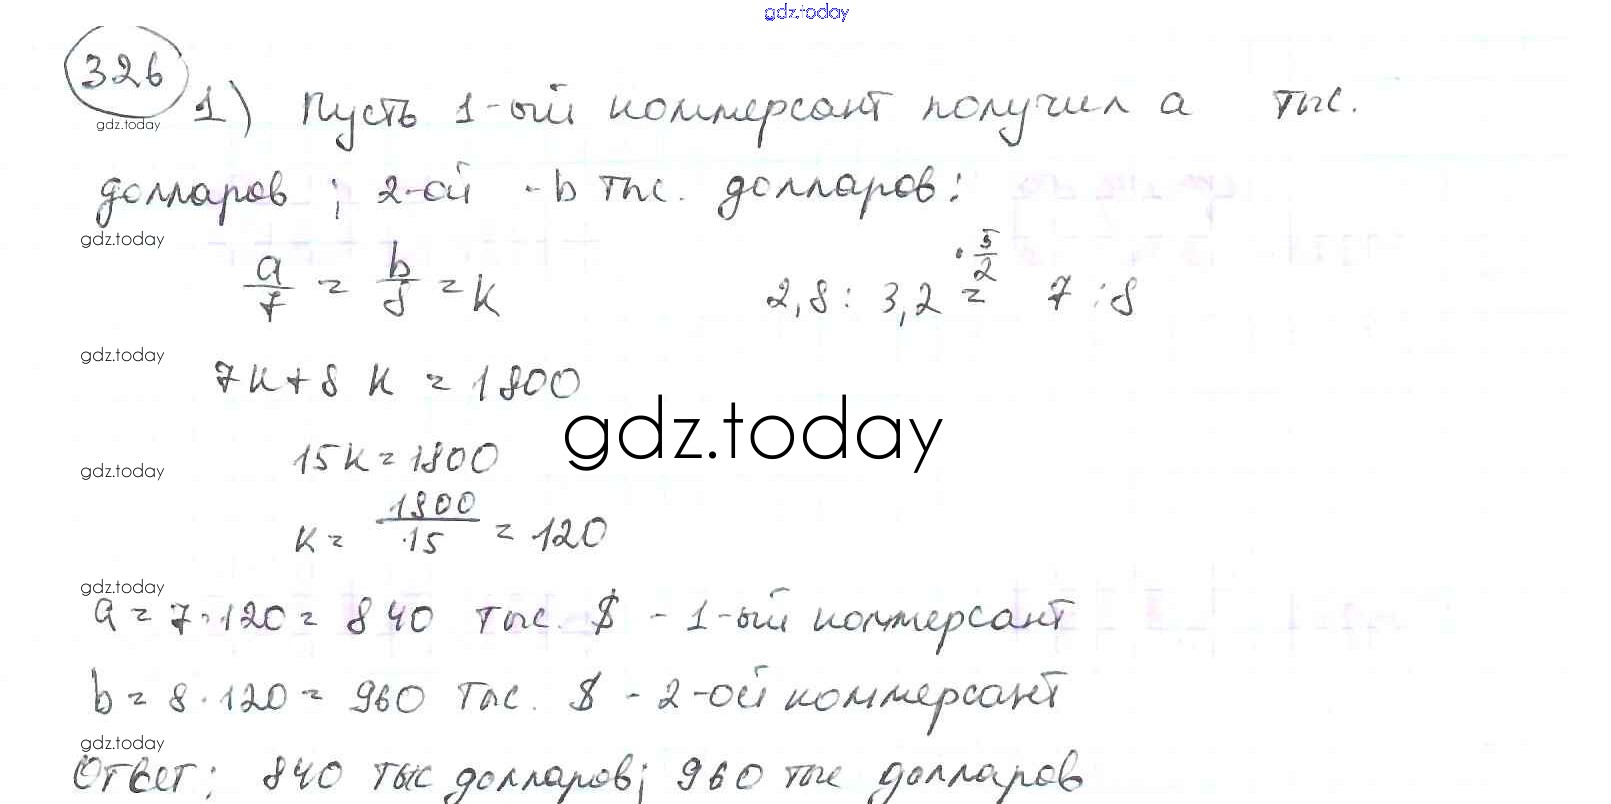 gdz.today
326
gdz.today
1) Пусть 1-ый коммерсант получил a тыс.
долларов; 2-ой - b тыс. долларов:
gdz.today
a/7 = b/8 = k 2,8 : 3,2 =^{· 5/2} 7 : 8
gdz.today
7k+8k = 1800
gdz.today
15k = 1800
gdz.today
k = 1800/15 = 120
gdz.today
a = 7·120 = 840 тыс. $ - 1-ый коммерсант
b = 8·120 = 960 тыс. $ - 2-ой коммерсант
gdz.today
Ответ: 840 тыс долларов; 960 тыс долларов